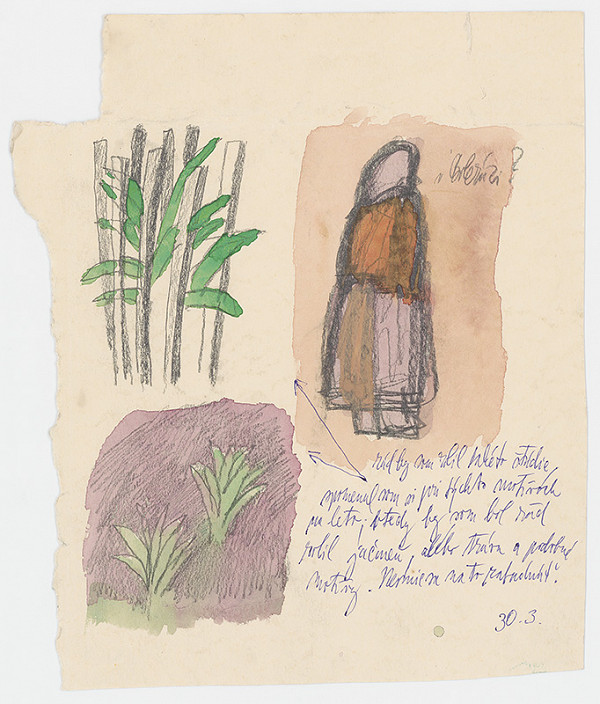 rád by som robil takéto štúdie,
spomenul som si pri týchto motívoch
na leto, vtedy by som bol rád
robil jačmeň, alebo trávu a podobné
motívy. Nesmiem na to zabudnúť!
30.3.